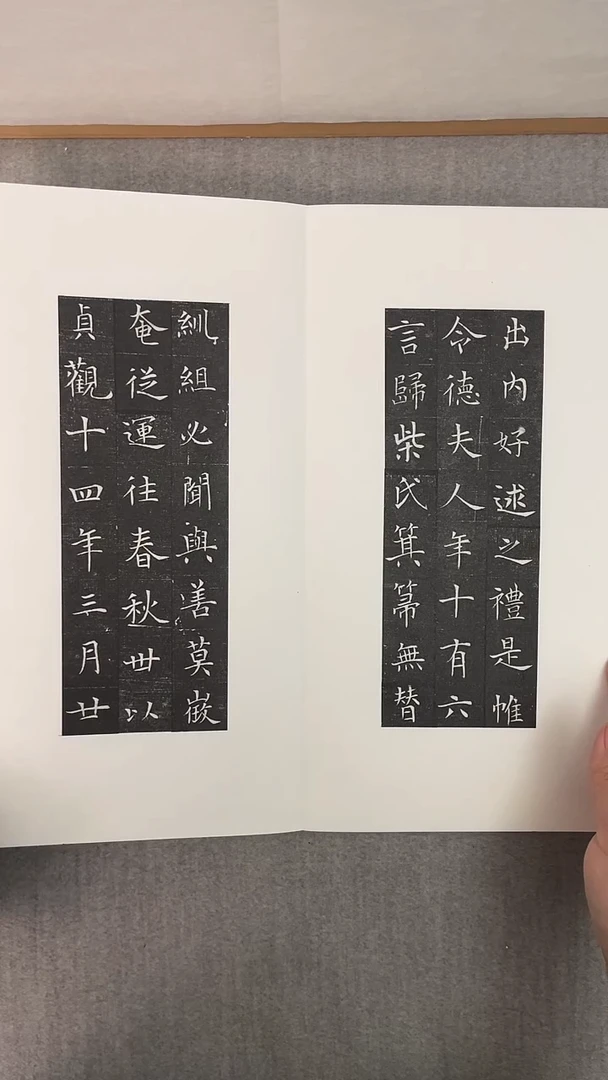 出内好逑之禮是惟
令德夫人年十有六
言歸柴氏箕帚無替
紃組必聞與善莫徵
奄從運往春秋卅以
貞觀十四年三月廿